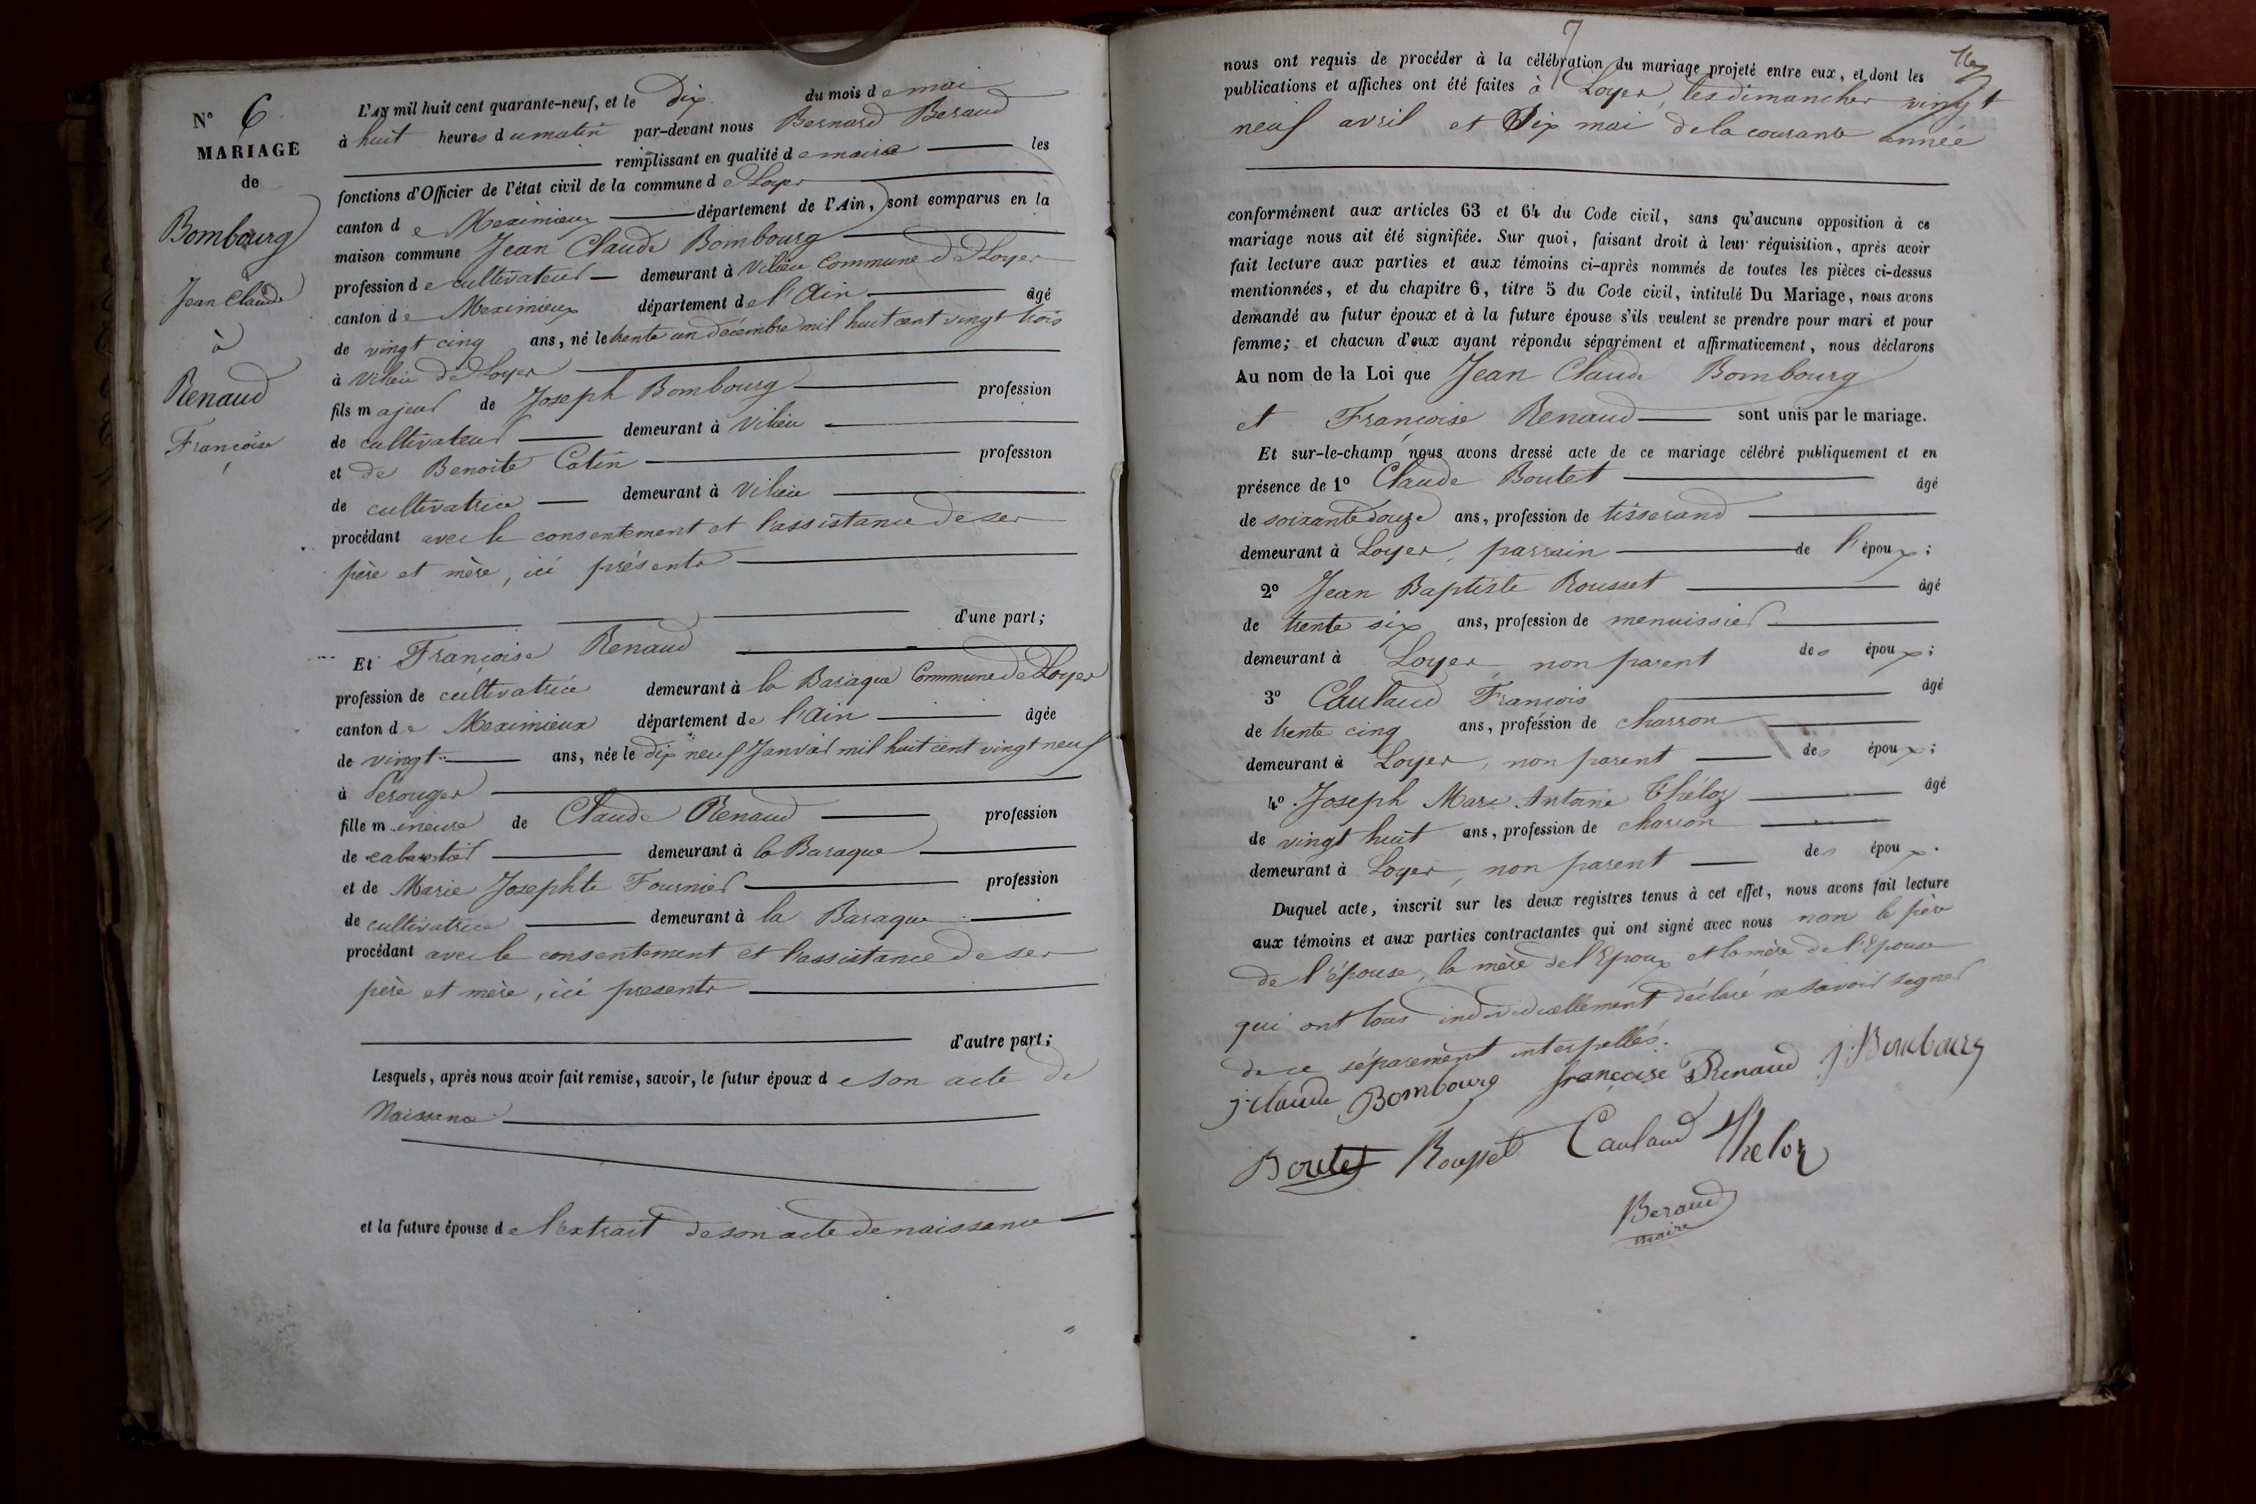 N° 6
MARIAGE
de
Bombourg
Jean Claude
à
Renaud
Françoise
L'AN mil huit cent quarante-neuf, et le dix du mois de mai
à huit heures du matin par-devant nous Bernard Beraud
remplissant en qualité de maire les
fonctions d'Officier de l'état civil de la commune de Loyes
canton de Meximieux département de l'Ain, sont comparus en la
maison commune Jean Claude Bombourg
profession de cultivateur demeurant à Vilieu Commune de Loyes
canton de Meximieux département de l'Ain âgé
de vingt cinq ans, né le trente un décembre mil huit cent vingt trois
à Vilieu de Loyes
fils majeur de Joseph Bombourg profession
de cultivateur demeurant à Vilieu
et de Benoite Catin profession
de cultivatrice demeurant à Vilieu
procédant avec le consentement et l'assistance de ses
père et mère, ici présents
d'une part;
Et Françoise Renaud
profession de cultivatrice demeurant à la Baraque Commune de Loyes
canton de Meximieux département de l'Ain âgée
de vingt ans, née le dix neuf Janvier mil huit cent vingt neuf
à Pérouges
fille mineure de Claude Renaud profession
de cabaretier demeurant à la Baraque
et de Marie Josephte Fournier profession
de cultivatrice demeurant à la Baraque
procédant avec le consentement et l'assistance de ses
père et mère, ici présents
d'autre part;
Lesquels, après nous avoir fait remise, savoir, le futur époux de son acte de
Naissance
et la future épouse de l'extrait de son acte de naissance
7
nous ont requis de procéder à la célébration du mariage projeté entre eux, et dont les
publications et affiches ont été faites à Loyes, les dimanches vingt
neuf avril et Dix mai de la courante année
conformément aux articles 63 et 64 du Code civil, sans qu'aucune opposition à ce
mariage nous ait été signifiée. Sur quoi, faisant droit à leur réquisition, après avoir
fait lecture aux parties et aux témoins ci-après nommés de toutes les pièces ci-dessus
mentionnées, et du chapitre 6, titre 5 du Code civil, intitulé Du Mariage, nous avons
demandé au futur époux et à la future épouse s'ils veulent se prendre pour mari et pour
femme; et chacun d'eux ayant répondu séparément et affirmativement, nous déclarons
Au nom de la Loi que Jean Claude Bombourg
et Françoise Renaud sont unis par le mariage.
Et sur-le-champ nous avons dressé acte de ce mariage célébré publiquement et en
présence de 1° Claude Boutet âgé
de soixante douze ans, profession de tisserand
demeurant à Loyes, parrain de l'époux;
2° Jean Baptiste Rousset âgé
de trente six ans, profession de menuisier
demeurant à Loyes non parent des époux;
3° Caulaud François âgé
de trente cinq ans, profession de charron
demeurant à Loyes, non parent des époux;
4° Joseph Marc Antoine Théloz âgé
de vingt huit ans, profession de charron
demeurant à Loyes, non parent des époux.
Duquel acte, inscrit sur les deux registres tenus à cet effet, nous avons fait lecture
aux témoins et aux parties contractantes qui ont signé avec nous non le père
de l'épouse, la mère de l'Epoux et la mère de l'Epouse
qui ont tous individuellement déclaré ne savoir signer
de ce séparément interpellés.
j. claude Bombourg françoise Renaud j. Bombourg
Boutet Rousset Caulaud Theloz
Beraud
maire